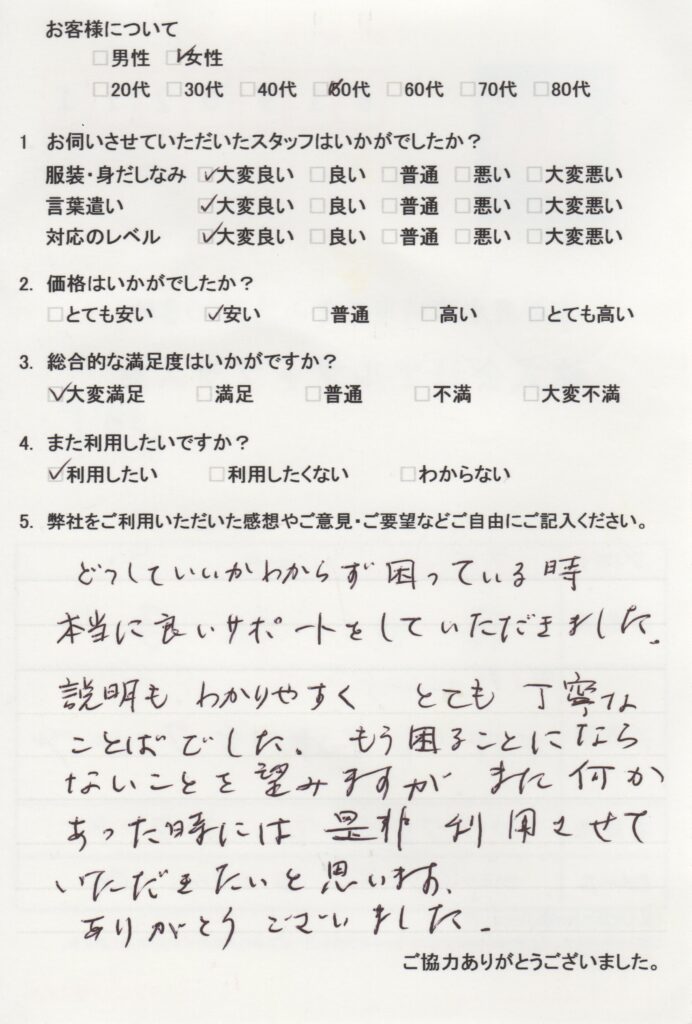 お客様について
□男性 ☑女性
□20代 □30代 □40代 ☑50代 □60代 □70代 □80代
1 お伺いさせていただいたスタッフはいかがでしたか？
服装・身だしなみ ☑大変良い □良い □普通 □悪い □大変悪い
言葉遣い ☑大変良い □良い □普通 □悪い □大変悪い
対応のレベル ☑大変良い □良い □普通 □悪い □大変悪い
2. 価格はいかがでしたか？
□とても安い ☑安い □普通 □高い □とても高い
3. 総合的な満足度はいかがですか？
☑大変満足 □満足 □普通 □不満 □大変不満
4. また利用したいですか？
☑利用したい □利用したくない □わからない
5. 弊社をご利用いただいた感想やご意見・ご要望などご自由にご記入ください。
どうしていいかわからず困っている時
本当に良いサポートをしていただきました。
説明も わかりやすく とても 丁寧な
ことばでした。 もう困ることになら
ないことを望みますが また何か
あった時には 是非 利用させて
いただきたいと思います。
ありがとう ございました。
ご協力ありがとうございました。